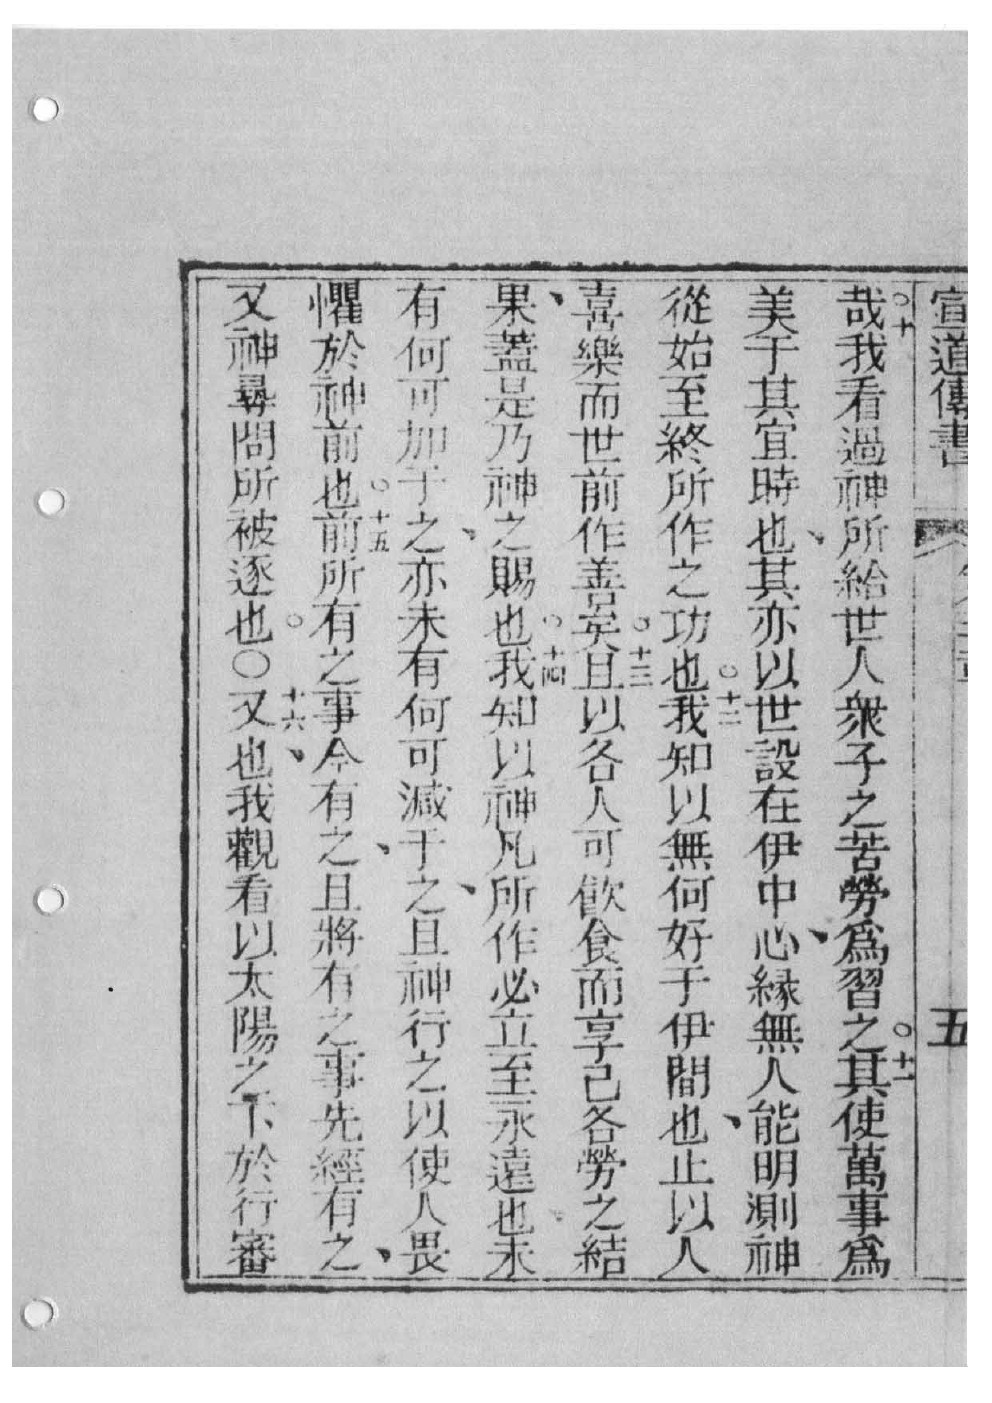 宣道傳書 五
哉○十我看過神所給世人衆子之苦勞爲習之○十一其使萬事爲
美于其宜時也、其亦以世設在伊中心、緣無人能明測神
從始至終所作之功也○十二我知以無何好于伊間也、止以人
喜樂而世前作善矣○十三且以各人可飮食而享己各勞之結
果、蓋是乃神之賜也○十四我知以神凡所作必立至永遠也、未
有何可加于之、亦未有何可減于之、且神行之以使人畏
懼於神前也○十五前所有之事今有之、且將有之事先經有之、
又神尋問所被逐也○〇十六又也、我觀看以太陽之下於行審